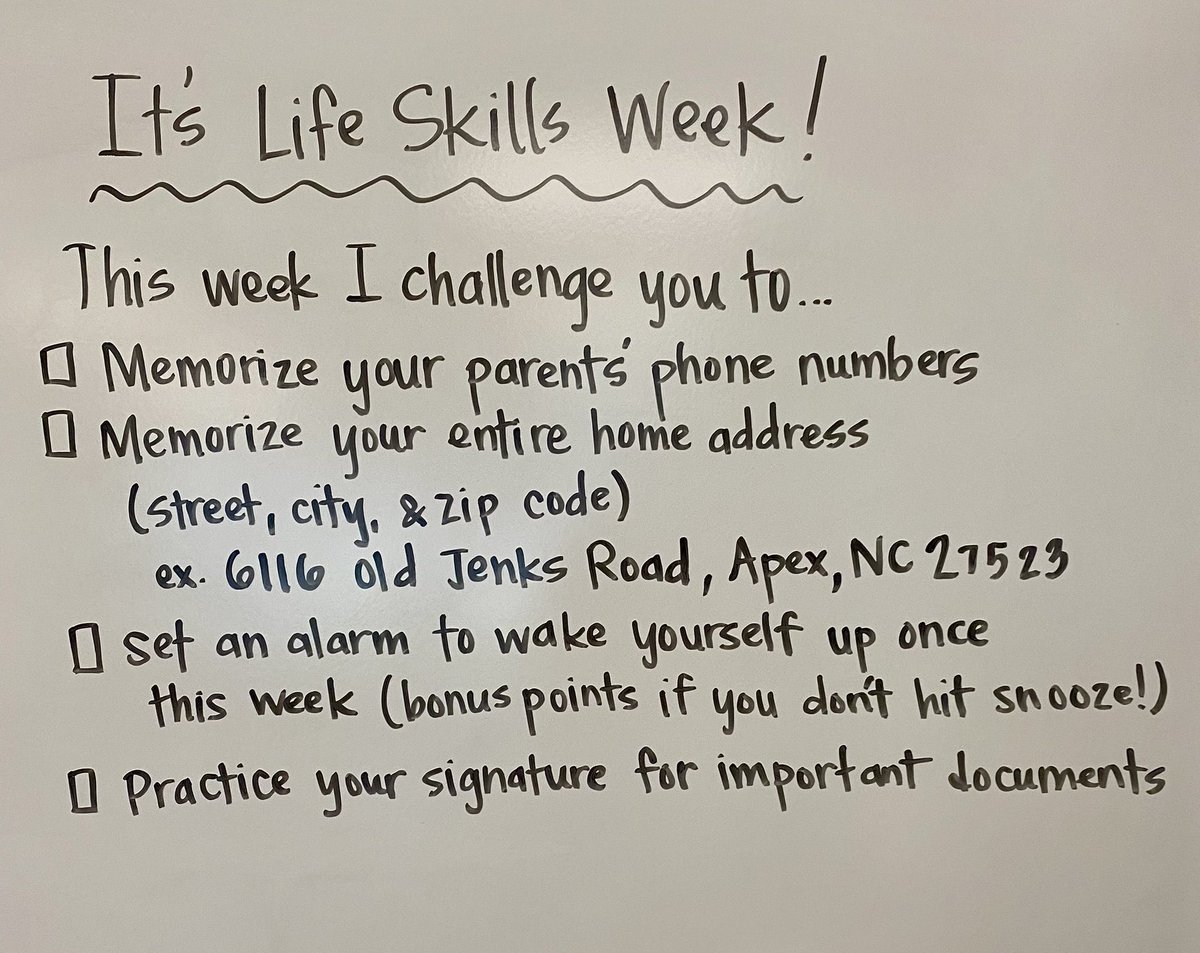 It's Life Skills Week!
This week I challenge you to...
Memorize your parents' phone numbers
Memorize your entire home address
(street, city, & zip code)
ex. 6116 old Jenks Road, Apex, NC 27523
set an alarm to wake yourself up once
this week (bonus points if you don't hit snooze!)
Practice your signature for important documents